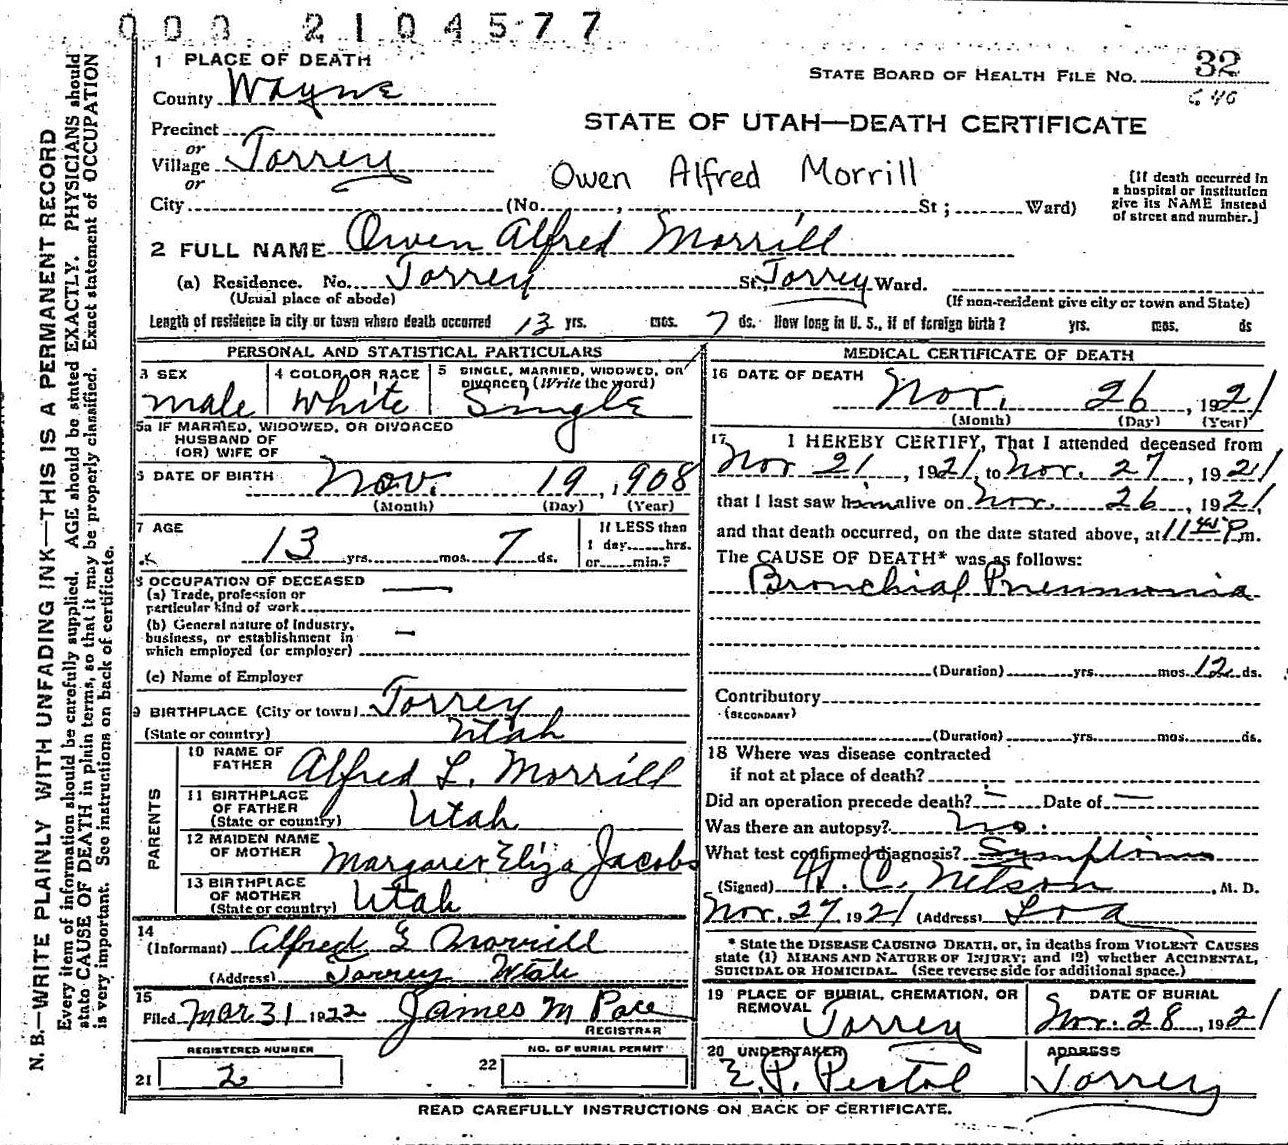 000 2104577
1 PLACE OF DEATH
STATE BOARD OF HEALTH FILE NO. 32
County Wayne
640
Precinct
STATE OF UTAH—DEATH CERTIFICATE
or
Village Torrey
or
Owen Alfred Morrill
[If death occurred in
a hospital or institution
give its NAME instead
of street and number.]
City (No. , St ; Ward)
2 FULL NAME Owen Alfred Morrill
(a) Residence. No. Torrey St. Torrey Ward.
(Usual place of abode) (If non-resident give city or town and State)
Length of residence in city or town where death occurred 13 yrs. mos. 7 ds. How long in U. S., if of foreign birth? yrs. mos. ds
PERSONAL AND STATISTICAL PARTICULARS
3 SEX 4 COLOR OR RACE 5 SINGLE, MARRIED, WIDOWED, OR
DIVORCED (Write the word)
male White Single
5a IF MARRIED, WIDOWED, OR DIVORCED
HUSBAND OF
(OR) WIFE OF
6 DATE OF BIRTH Nov. 19, 1908
(Month) (Day) (Year)
7 AGE 13 yrs. mos. 7 ds.
If LESS than
1 day hrs.
or min.?
8 OCCUPATION OF DECEASED —
(a) Trade, profession or
particular kind of work
(b) General nature of Industry,
business, or establishment in —
which employed (or employer)
(c) Name of Employer
9 BIRTHPLACE (City or town) Torrey
(State or country) Utah
PARENTS
10 NAME OF
FATHER Alfred L. Morrill
11 BIRTHPLACE
OF FATHER
(State or country) Utah
12 MAIDEN NAME
OF MOTHER Margaret Eliza Jacobs
13 BIRTHPLACE
OF MOTHER
(State or country) Utah
14
(Informant) Alfred L Morrill
(Address) Torrey Utah
15
Filed Mar 31 1922 James M Pace
REGISTRAR
REGISTERED NUMBER NO. OF BURIAL PERMIT
21 2 22
MEDICAL CERTIFICATE OF DEATH
16 DATE OF DEATH Nov. 26, 1921
(Month) (Day) (Year)
17 I HEREBY CERTIFY, That I attended deceased from
Nov 21, 1921 to Nov. 27, 1921
that I last saw him alive on Nov. 26, 1921,
and that death occurred, on the date stated above, at 11 40 P.m.
The CAUSE OF DEATH* was as follows:
Bronchial Pneumonia
(Duration) yrs. mos. 12 ds.
Contributory
(SECONDARY)
(Duration) yrs. mos. ds.
18 Where was disease contracted
if not at place of death?
Did an operation precede death? — Date of —
Was there an autopsy? no.
What test confirmed diagnosis? Symptoms
(Signed) H. C. Nelson, M. D.
Nov. 27, 1921 (Address) Loa
* State the DISEASE CAUSING DEATH, or, in deaths from VIOLENT CAUSES
state (1) MEANS AND NATURE OF INJURY; and (2) whether ACCIDENTAL,
SUICIDAL OR HOMICIDAL. (See reverse side for additional space.)
19 PLACE OF BURIAL, CREMATION, OR
REMOVAL Torrey
DATE OF BURIAL
Nov. 28, 1921
20 UNDERTAKER
E. P. Pectol
ADDRESS
Torrey
READ CAREFULLY INSTRUCTIONS ON BACK OF CERTIFICATE.
N. B.—WRITE PLAINLY WITH UNFADING INK—THIS IS A PERMANENT RECORD
Every item of information should be carefully supplied. AGE should be stated EXACTLY. PHYSICIANS should
state CAUSE OF DEATH in plain terms, so that it may be properly classified. Exact statement of OCCUPATION
is very important. See instructions on back of certificate.